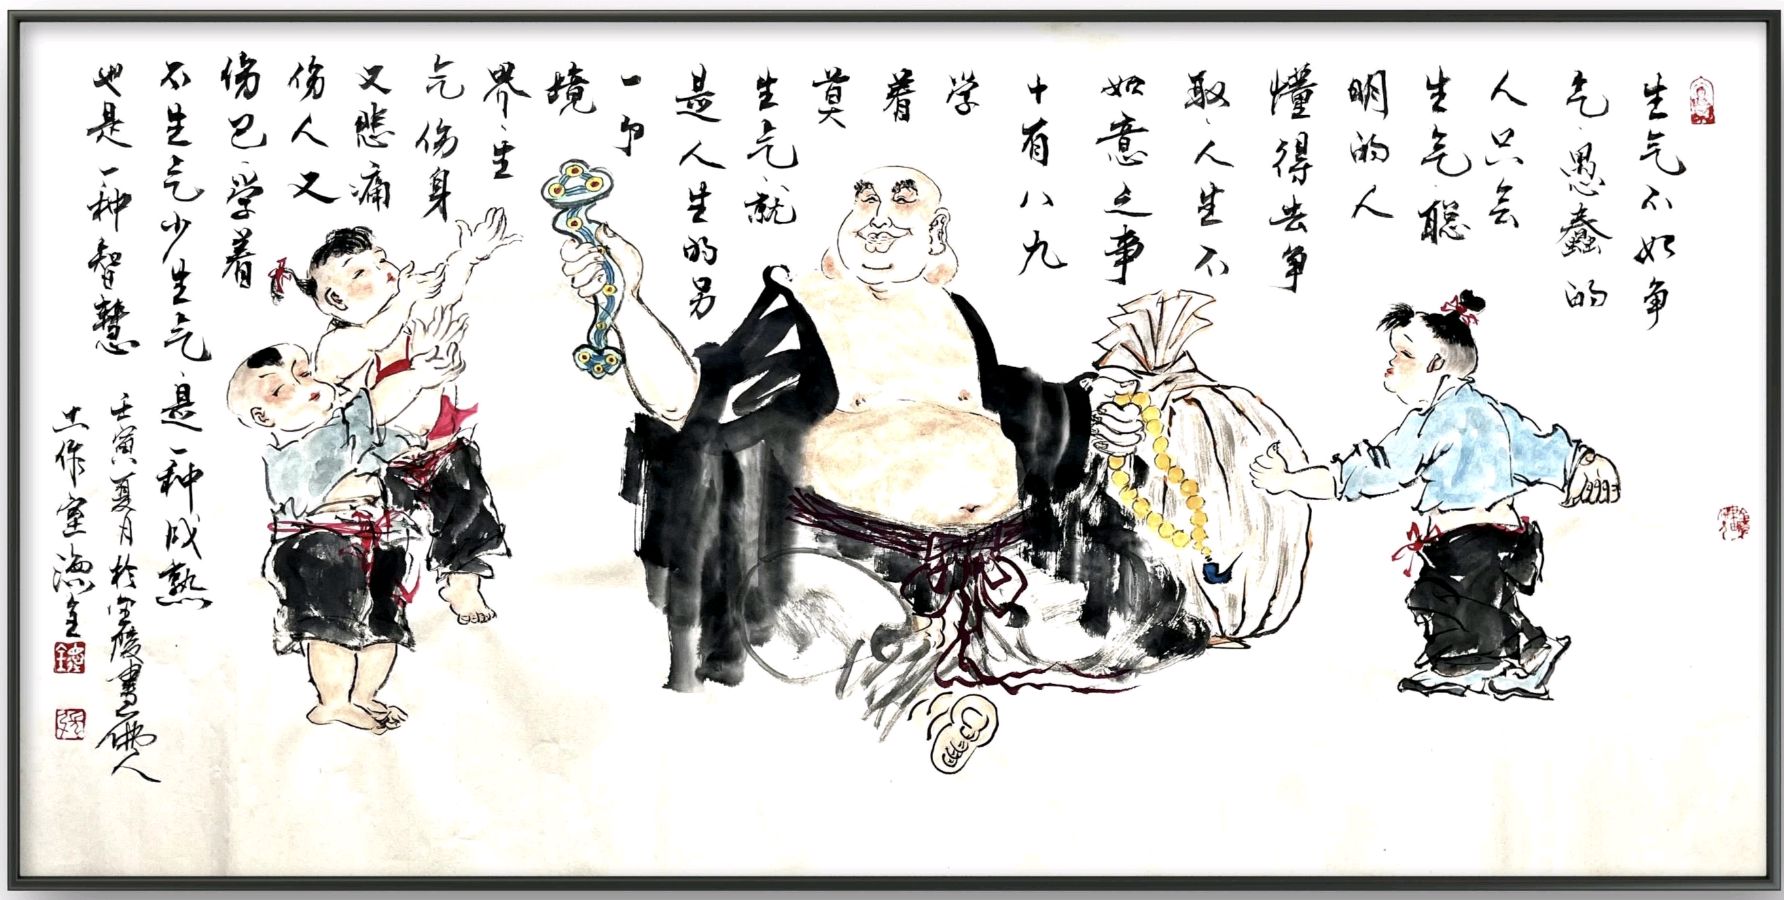 生气不如争
气,愚蠢的
人只会
生气,聪
明的人
懂得去争
取,人生不
如意之事
十有八九
学
着
莫
生气,就
是人生的另
一
境
界,生
气伤身
又悲痛
伤人又
伤己,学着
不生气少生气,是一种成熟
也是一种智慧
壬寅夏月於金陵畫佛人
作室